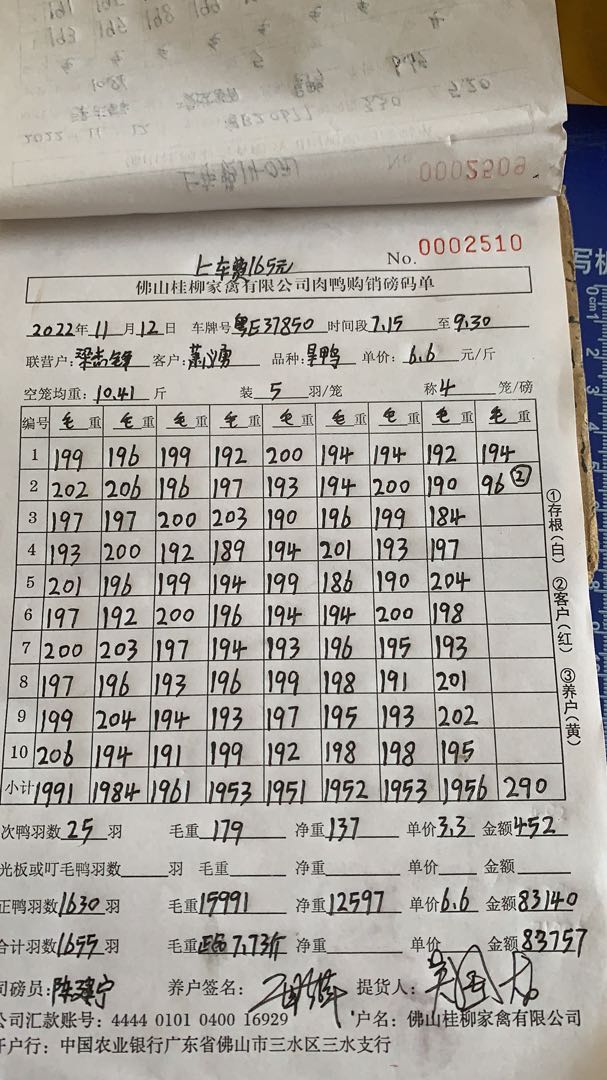 No. 0002509
上车费165元
No. 0002510
佛山桂柳家禽有限公司肉鸭购销磅码单
2022年11月12日 车牌号粤E37850 时间段7.15至9.30
联营户: 客户:萧议勇 品种: 单价:6.6元/斤
空笼均重:10.41斤 装5羽/笼 称4笼/磅
编号 毛重 毛重 毛重 毛重 毛重 毛重 毛重 毛重 毛重
1 199 196 199 192 200 194 194 192 194
2 202 206 196 197 193 194 200 190 96②
3 197 197 200 203 190 196 199 184
4 193 200 192 189 194 201 193 197
5 201 196 199 194 199 186 190 204
6 197 192 200 196 194 194 200 198
7 200 203 197 194 193 196 195 193
8 197 196 193 196 199 198 191 201
9 199 204 194 193 197 195 193 202
10 206 194 191 199 192 198 198 195
小计 1991 1984 1961 1953 1951 1952 1953 1956 290
①存根(白) ②客户(红) ③养户(黄)
次鸭羽数25羽 毛重179 净重137 单价3.3 金额452
光板或叮毛鸭羽数 羽 毛重 净重 单价 金额
正鸭羽数1630羽 毛重15991 净重12597 单价6.6 金额83140
合计羽数1655羽 毛重正品7.73斤 净重 单价 金额83757
司磅员:陈建宁 养户签名: 提货人:
公司汇款账号:4444 0101 0400 16929 户名:佛山桂柳家禽有限公司
开户行:中国农业银行广东省佛山市三水区三水支行